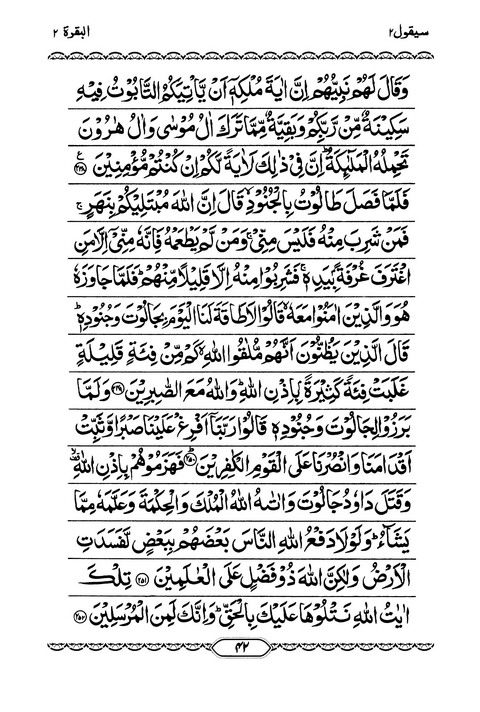 سيقول ٢
البقرة ٢
وَقَالَ لَهُمْ نَبِيُّهُمْ اِنَّ اٰيَةَ مُلْكِهٖٓ اَنْ يَّاْتِيَكُمُ التَّابُوْتُ فِيْهِ
سَكِيْنَةٌ مِّنْ رَّبِّكُمْ وَبَقِيَّةٌ مِّمَّا تَرَكَ اٰلُ مُوْسٰى وَاٰلُ هٰرُوْنَ
تَحْمِلُهُ الْمَلٰٓئِكَةُ ؕ اِنَّ فِيْ ذٰلِكَ لَاٰيَةً لَّكُمْ اِنْ كُنْتُمْ مُّؤْمِنِيْنَ ﴿٢٤٨﴾ ع
فَلَمَّا فَصَلَ طَالُوْتُ بِالْجُنُوْدِ ۙ قَالَ اِنَّ اللّٰهَ مُبْتَلِيْكُمْ بِنَهَرٍ ۚ
فَمَنْ شَرِبَ مِنْهُ فَلَيْسَ مِنِّيْ ۚ وَمَنْ لَّمْ يَطْعَمْهُ فَاِنَّهٗ مِنِّيْٓ اِلَّا مَنِ
اغْتَرَفَ غُرْفَةًۢ بِيَدِهٖ ۚ فَشَرِبُوْا مِنْهُ اِلَّا قَلِيْلًا مِّنْهُمْ ؕ فَلَمَّا جَاوَزَهٗ
هُوَ وَالَّذِيْنَ اٰمَنُوْا مَعَهٗ ۙ قَالُوْا لَا طَاقَةَ لَنَا الْيَوْمَ بِجَالُوْتَ وَجُنُوْدِهٖ ؕ
قَالَ الَّذِيْنَ يَظُنُّوْنَ اَنَّهُمْ مُّلٰقُوا اللّٰهِ ۙ كَمْ مِّنْ فِئَةٍ قَلِيْلَةٍ
غَلَبَتْ فِئَةً كَثِيْرَةًۢ بِاِذْنِ اللّٰهِ ؕ وَاللّٰهُ مَعَ الصّٰبِرِيْنَ ﴿٢٤٩﴾ وَلَمَّا
بَرَزُوْا لِجَالُوْتَ وَجُنُوْدِهٖ قَالُوْا رَبَّنَآ اَفْرِغْ عَلَيْنَا صَبْرًا وَّثَبِّتْ
اَقْدَامَنَا وَانْصُرْنَا عَلَى الْقَوْمِ الْكٰفِرِيْنَ ﴿٢٥٠﴾ؕ فَهَزَمُوْهُمْ بِاِذْنِ اللّٰهِ ۙ
وَقَتَلَ دَاوٗدُ جَالُوْتَ وَاٰتٰىهُ اللّٰهُ الْمُلْكَ وَالْحِكْمَةَ وَعَلَّمَهٗ مِمَّا
يَشَآءُ ؕ وَلَوْلَا دَفْعُ اللّٰهِ النَّاسَ بَعْضَهُمْ بِبَعْضٍ لَّفَسَدَتِ
الْاَرْضُ وَلٰكِنَّ اللّٰهَ ذُوْ فَضْلٍ عَلَى الْعٰلَمِيْنَ ﴿٢٥١﴾ تِلْكَ
اٰيٰتُ اللّٰهِ نَتْلُوْهَا عَلَيْكَ بِالْحَقِّ ؕ وَاِنَّكَ لَمِنَ الْمُرْسَلِيْنَ ﴿٢٥٢﴾
۴۲